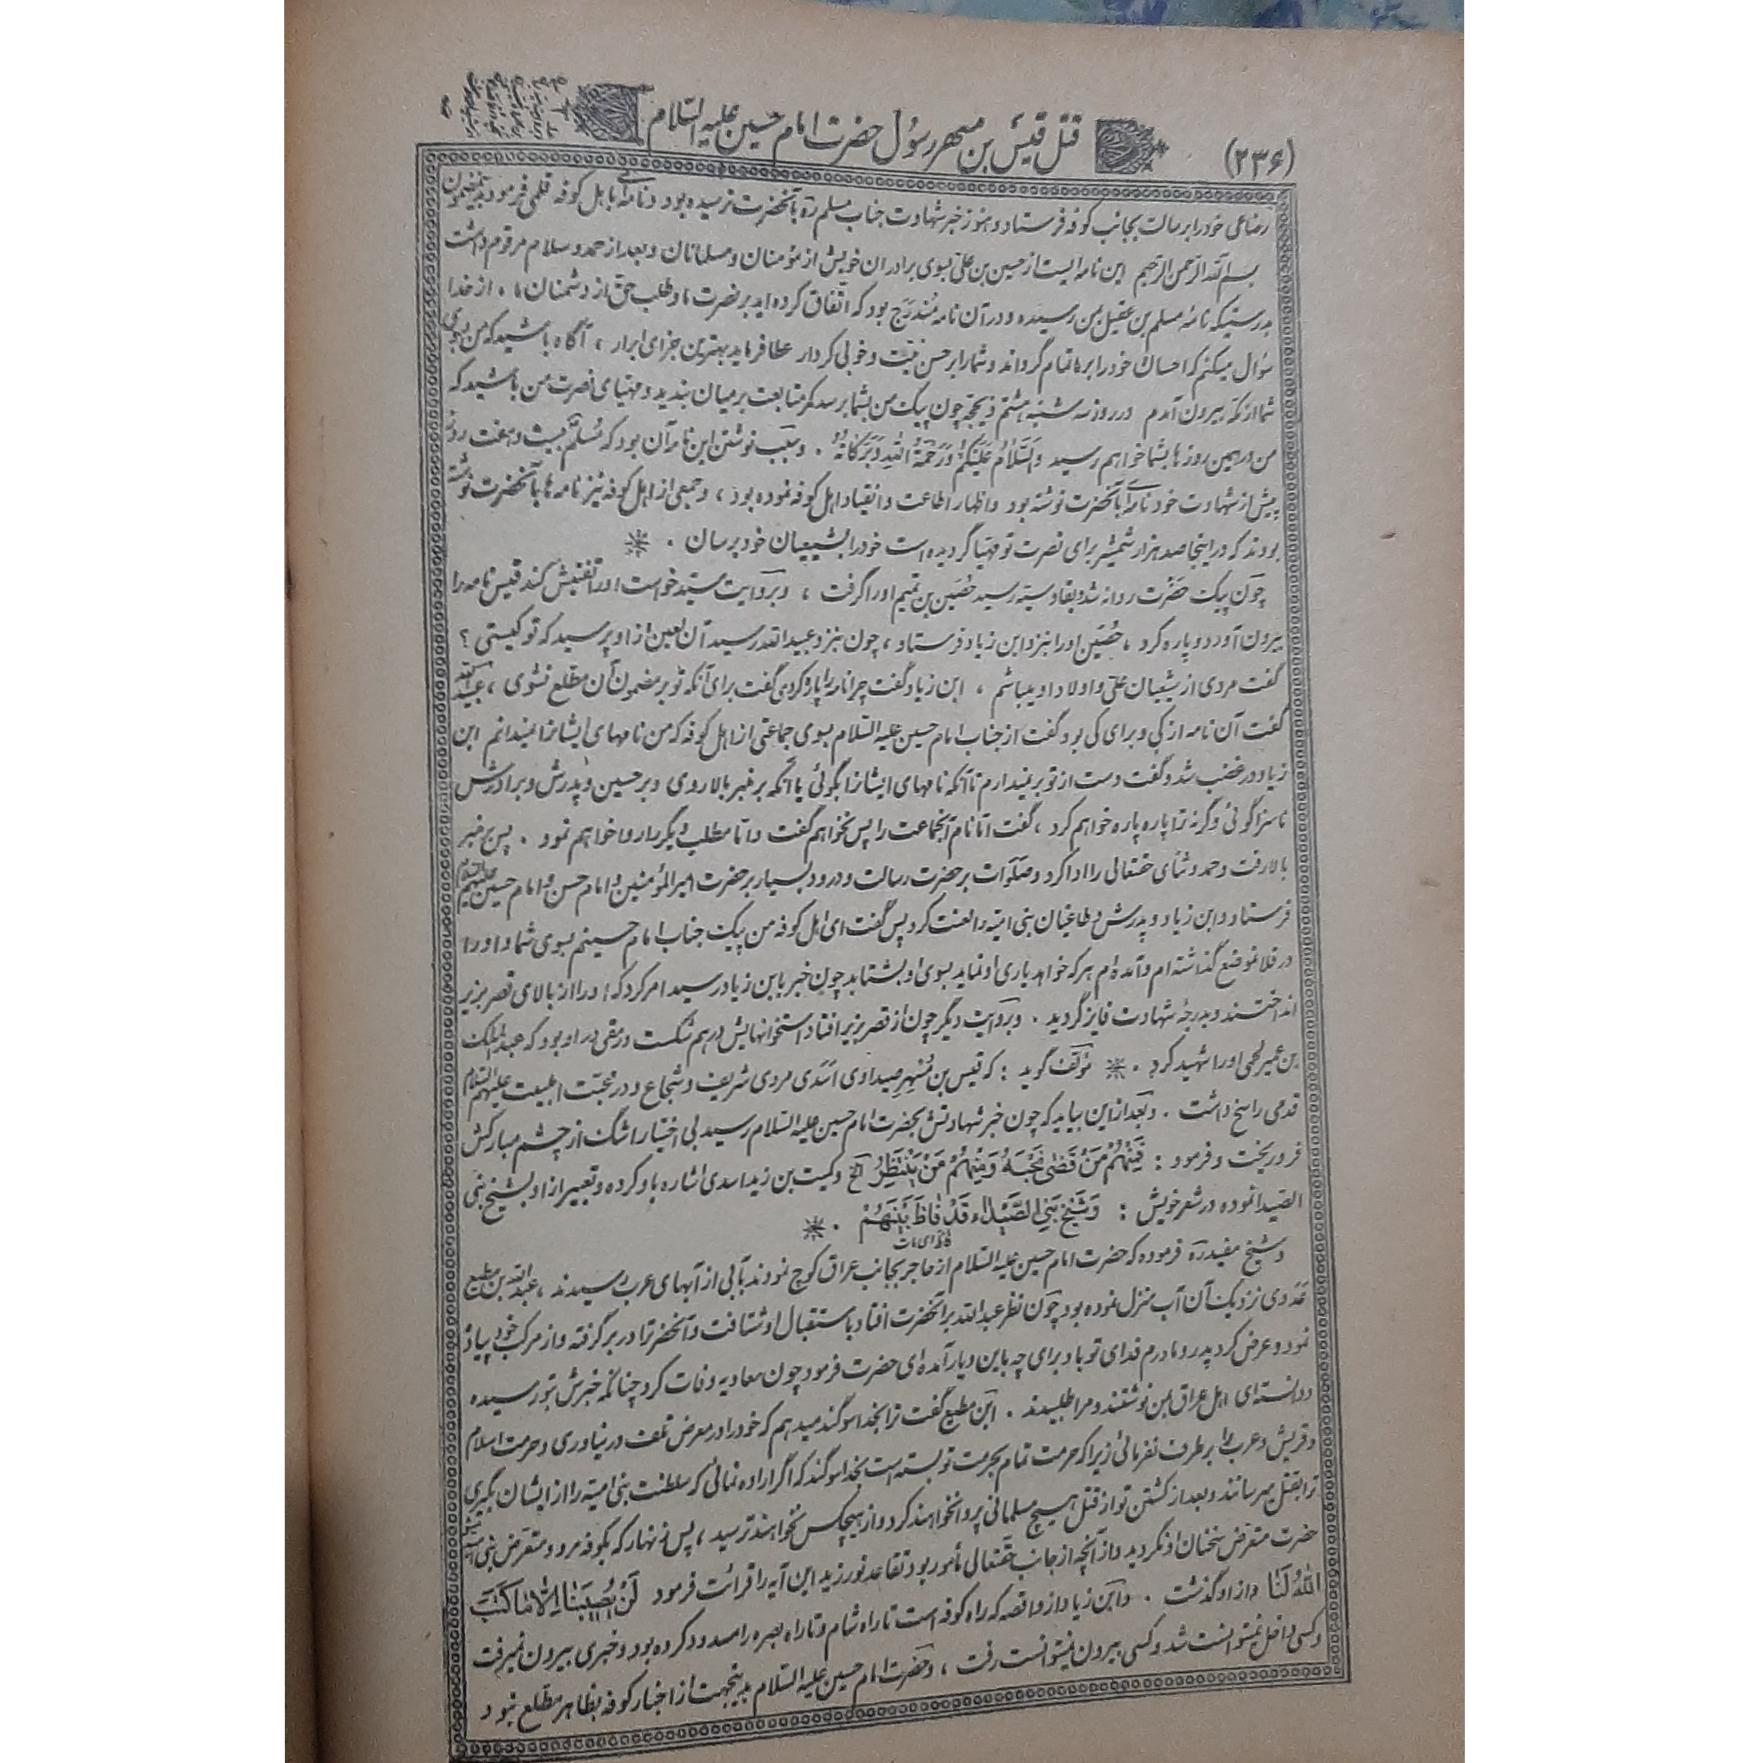 (۲۳۶)
قتل قیس بن مسهر رسول حضرت امام حسین علیه السّلام
رضاعی خود را برسالت بجانب کوفه فرستاد و هنوز خبر شهادت جناب مسلم ره بآنحضرت نرسیده بود و نامه‌ای باهل کوفه قلمی فرمود بدینمضمون
بسم الله الرّحمن الرّحیم این نامه ایست از حسین بن علی بسوی برادران خویش از مؤمنان و مسلمانان و بعد از حمد و سلام مرقوم داشت
بدرستیکه نامهٔ مسلم بن عقیل بمن رسیده و در آن نامه مُندرَج بود که اتّفاق کرده‌اید بر نصرت ما و طلب حق از دشمنان ما، از خدا
سؤال میکنم که احسان خود را بر ما تمام گرداند و شما را بر حسن نیّت و خوبی کردار عطا فرماید بهترین جزای ابرار، آگاه باشید که من بسوی
شما از مکّه بیرون آمدم در روز سه شنبه هشتم ذیحجّه چون پیک من بشما برسد کمر متابعت بر میان بندید و مهیّای نصرت من باشید که
من در همین روزها بشما خواهم رسید وَالسَّلامُ عَلَیْکُمْ وَرَحْمَةُ اللهِ وَبَرَکاتُهُ . و سبب نوشتن این نامه آن بود که مُسلم بیست و هفت روز
پیش از شهادت خود نامه‌ای بآنحضرت نوشته بود و اظهار اطاعت و انقیاد اهل کوفه نموده بود، و جمعی از اهل کوفه نیز نامه‌ها بآنحضرت نوشته
بودند که در اینجا صد هزار شمشیر برای نصرت تو مهیّا گردیده است خود را بشیعیان خود برسان .
چون پیک حضرت روانه شد و بقادسیّه رسید حُصَین بن تمیم او را گرفت ، و بروایت سیّد خواست او را تفتیش کند قیس نامه را
بیرون آورد و پاره کرد، حُصَین او را بنزد ابن زیاد فرستاد، چون بنزد عبیدالله رسید آن لعین از او پرسید که تو کیستی ؟
گفت مردی از شیعیان علی و اولاد او میباشم ، ابن زیاد گفت چرا نامه را پاره کردی گفت برای آنکه تو بر مضمون آن مطّلع نشوی، عبیدالله
گفت آن نامه از کی و برای کی بود گفت از جناب امام حسین علیه السّلام بسوی جماعتی از اهل کوفه که من نامهای ایشانرا نمیدانم ابن
زیاد در غضب شد و گفت دست از تو برنمیدارم تا آنکه نامهای ایشانرا بگوئی یا آنکه بر منبر بالا روی و بر حسین و پدرش و برادرش
ناسزا گوئی وگرنه ترا پاره پاره خواهم کرد، گفت امّا نام آنجماعت را پس نخواهم گفت و امّا مطلب دیگر را روا خواهم نمود . پس بر منبر
بالا رفت و حمد و ثنای حقتعالی را ادا کرد و صلوات بر حضرت رسالت و درود بسیار بر حضرت امیرالمؤمنین و امام حسن و امام حسین علیهم السلام
فرستاد و ابن زیاد و پدرش و طاغیان بنی امیّه را لعنت کرد پس گفت ای اهل کوفه من پیک جناب امام حسینم بسوی شما و او را
در فلانموضع گذاشته‌ام و آمده‌ام هر که خواهد یاری او نماید بسوی او بشتابد چون خبر بابن زیاد رسید امر کرد که او را از بالای قصر بزیر
انداختند و بدرجهٔ شهادت فایز گردید . و بروایت دیگر چون از قصر بزیر افتاد استخوانهایش درهم شکست و رمقی در او بود که عبدالملک
بن عمیر لخمی او را شهید کرد . مؤلّف گوید : که قیس بن مُسْهِر صیداوی اَسَدی مردی شریف و شجاع و در محبّت اهلبیت علیهم السّلام
قدمی راسخ داشت . و بعد از این بیاید که چون خبر شهادتش بحضرت امام حسین علیه السّلام رسید بی اختیار اشک از چشم مبارکش
فرو ریخت و فرمود : فَمِنْهُمْ مَنْ قَضیٰ نَحْبَهُ وَمِنْهُمْ مَنْ یَنْتَظِرُ الخ و کمیت بن زید اسدی اشاره باو کرده و تعبیر از او بشیخ بنی
الصّیدا نموده در شعر خویش : وَشَیْخُ بَنِی الصَّیْداءِ قَدْ فاظَ بَیْنَهُمْ .
فاظ ای مات
و شیخ مفید ره فرموده که حضرت امام حسین علیه السّلام از حاجر بجانب عراق کوچ نمودند بآبی از آبهای عرب رسیدند، عبدالله بن مطیع
عَدَوی نزدیک آن آب منزل نموده بود چون نظر عبدالله بر آنحضرت افتاد باستقبال او شتافت و آنحضرترا در بر گرفته و از مرکب خود پیاده
نمود و عرض کرد پدر و مادرم فدای تو باد برای چه باین دیار آمده‌ای حضرت فرمود چون معاویه وفات کرد چنانکه خبرش بتو رسیده
و دانسته‌ای اهل عراق بمن نوشتند و مرا طلبیدند . ابن مطیع گفت ترا بخدا سوگند میدهم که خود را در معرض تلف در نیاوری و حرمت اسلام
و قریش و عرب را برطرف نفرمائی زیرا که حرمت تمام بحرمت تو بسته است بخدا سوگند که اگر اراده نمائی که سلطنت بنی امیّه را از ایشان بگیری
ترا بقتل میرسانند و بعد از کشتن تو از قتل هیچ مسلمانی پروا نخواهند کرد و از هیچکس نخواهند ترسید، پس زنهار که بکوفه مرو و متعرّض بنی امیّه مشو
حضرت متعرّض سخنان او نگردید و از آنچه از جانب حقتعالی مأمور بود تقاعد نورزید این آیه را قرائت فرمود لَنْ یُصیبَنا اِلّا ما کَتَبَ
اللّٰهُ لَنا و از او گذشت . و ابن زیاد از واقصه که راه کوفه است تا راه شام و تا راه بصره را مسدود کرده بود و خبری بیرون نمیرفت
و کسی داخل نمیتوانست شد و کسی بیرون نمیتوانست رفت ، و حضرت امام حسین علیه السّلام بدینجهت از اخبار کوفه بظاهر مطّلع نبود